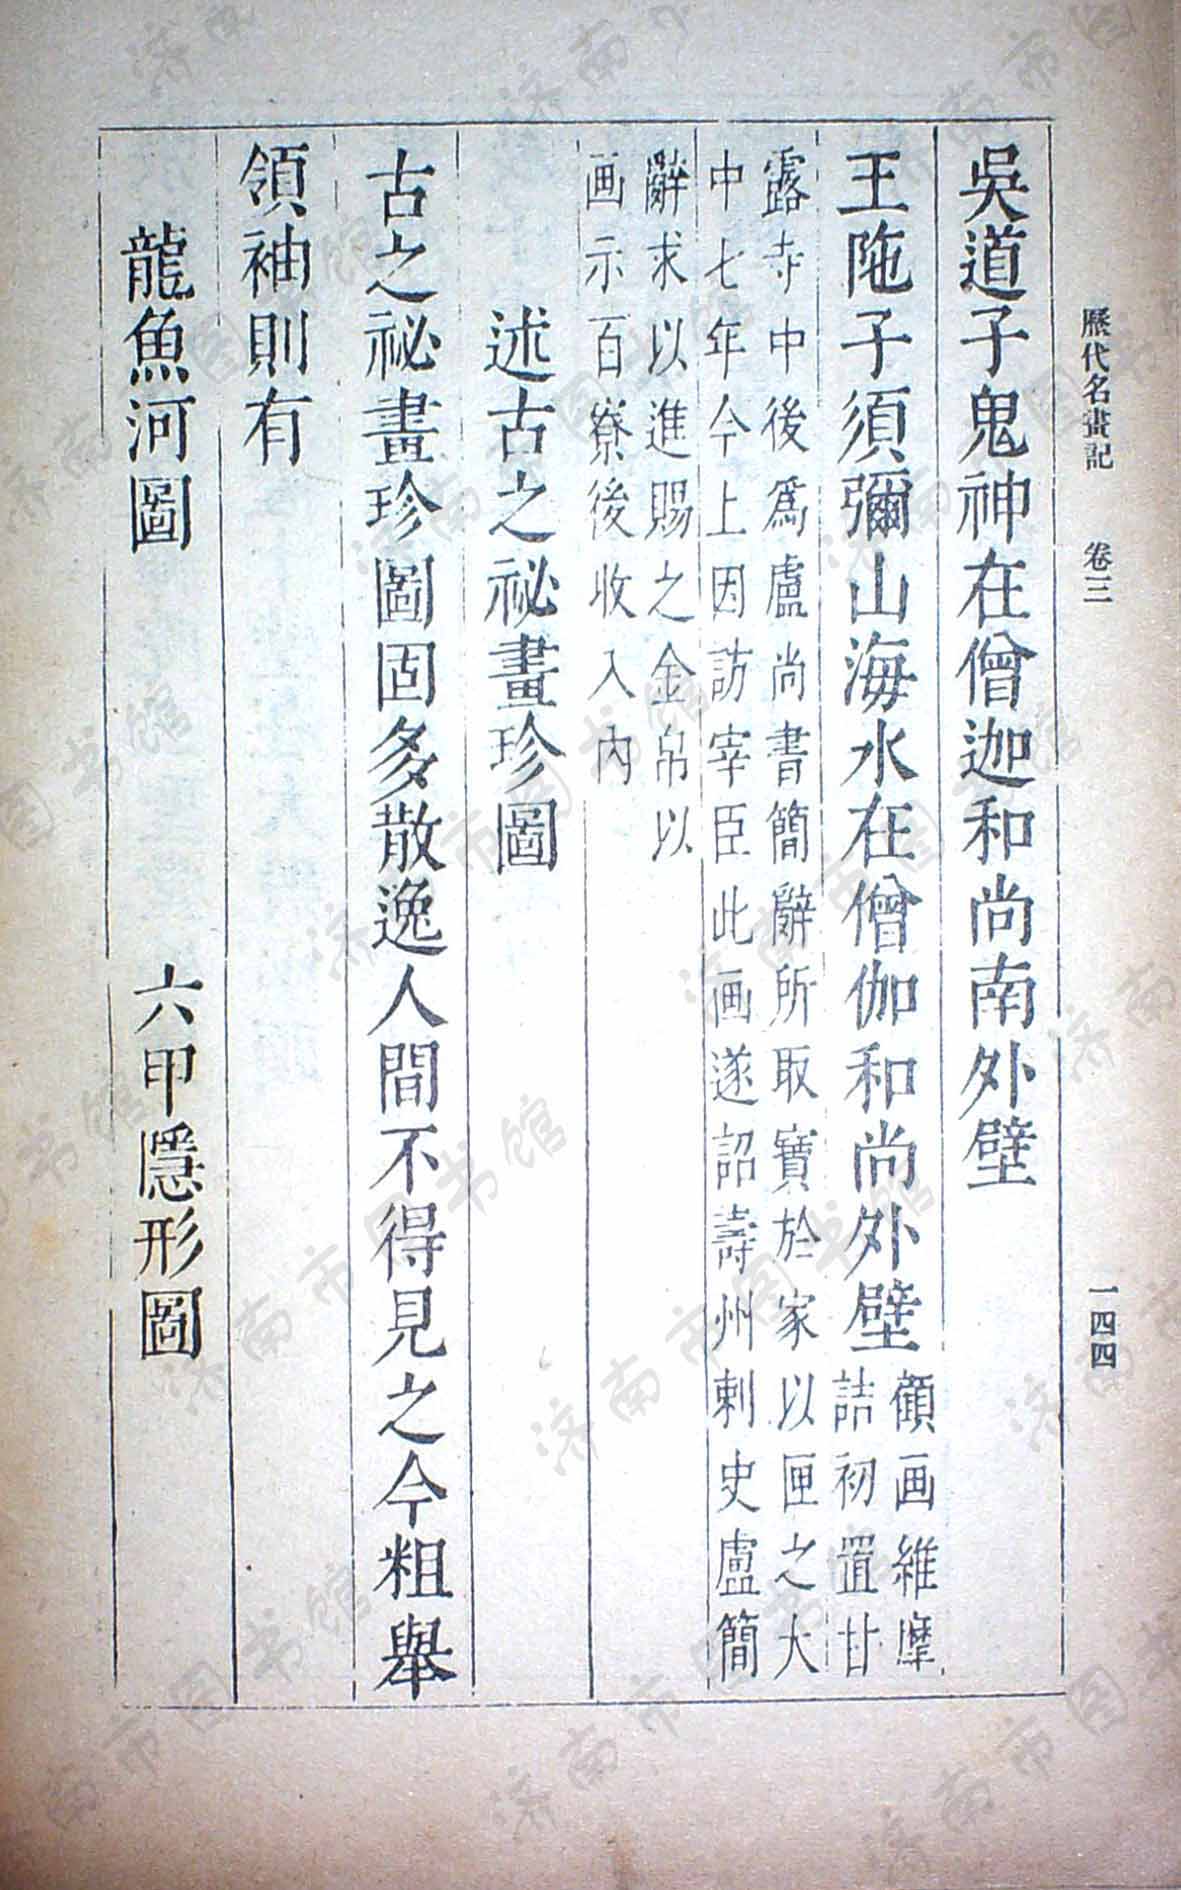 歷代名畫記 卷三 一四四
吳道子鬼神在僧迦和尚南外壁
王陁子須彌山海水在僧伽和尚外壁
顧画維摩
詰初置甘
露寺中後爲盧尚書簡辭所取寶於家以匣之大
中七年今上因訪宰臣此画遂詔壽州刺史盧簡
辭求以進賜之金帛以
画示百寮後收入內
述古之祕畫珍圖
古之祕畫珍圖固多散逸人間不得見之今粗舉
領袖則有
龍魚河圖 六甲隱形圖
济南市图书馆